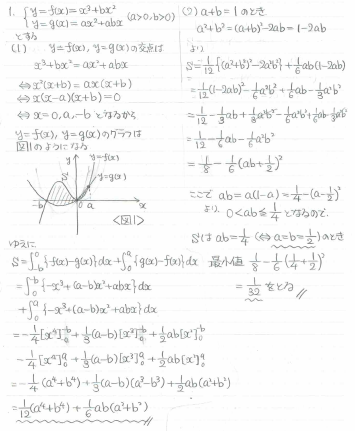 1. { y=f(x)=x³+bx²
y=g(x)=ax²+abx (a>0, b>0)
とする
(1) y=f(x), y=g(x)の交点は
x³+bx²=ax²+abx
⇔ x²(x+b)=ax(x+b)
⇔ x(x-a)(x+b)=0
⇔ x=0, a, -b となるから
y=f(x), y=g(x)のグラフは
図1のようになる
y
y=f(x)
y=g(x)
-b 0 a x
<図1>
ゆえに
S=∫_{-b}^{0}{f(x)-g(x)}dx+∫_{0}^{a}{g(x)-f(x)}dx
=∫_{0}^{-b}{-x³+(a-b)x²+abx}dx
+∫_{0}^{a}{-x³+(a-b)x²+abx}dx
=-1/4[x⁴]_{0}^{-b}+1/3(a-b)[x³]_{0}^{-b}+1/2ab[x²]_{0}^{-b}
-1/4[x⁴]_{0}^{a}+1/3(a-b)[x³]_{0}^{a}+1/2ab[x²]_{0}^{a}
=-1/4(a⁴+b⁴)+1/3(a-b)(a³-b³)+1/2ab(a²+b²)
=1/12(a⁴+b⁴)+1/6ab(a²+b²)
(2) a+b=1のとき
a²+b²=(a+b)²-2ab=1-2ab
より
S=1/12{(a²+b²)²-2a²b²}+1/6ab(1-2ab)
=1/12(1-2ab)²-1/6a²b²+1/6ab-1/3a²b²
=1/12-1/3ab+1/3a²b²-1/6a²b²+1/6ab-1/3a²b²
=1/12-1/6ab-1/6a²b²
=1/8-1/6(ab+1/2)²
ここで ab=a(1-a)=1/4-(a-1/2)²
より 0<ab≦1/4 となるので、
Sはab=1/4(⇔a=b=1/2)のとき
最小値 1/8-1/6(1/4+1/2)²
=1/32をとる